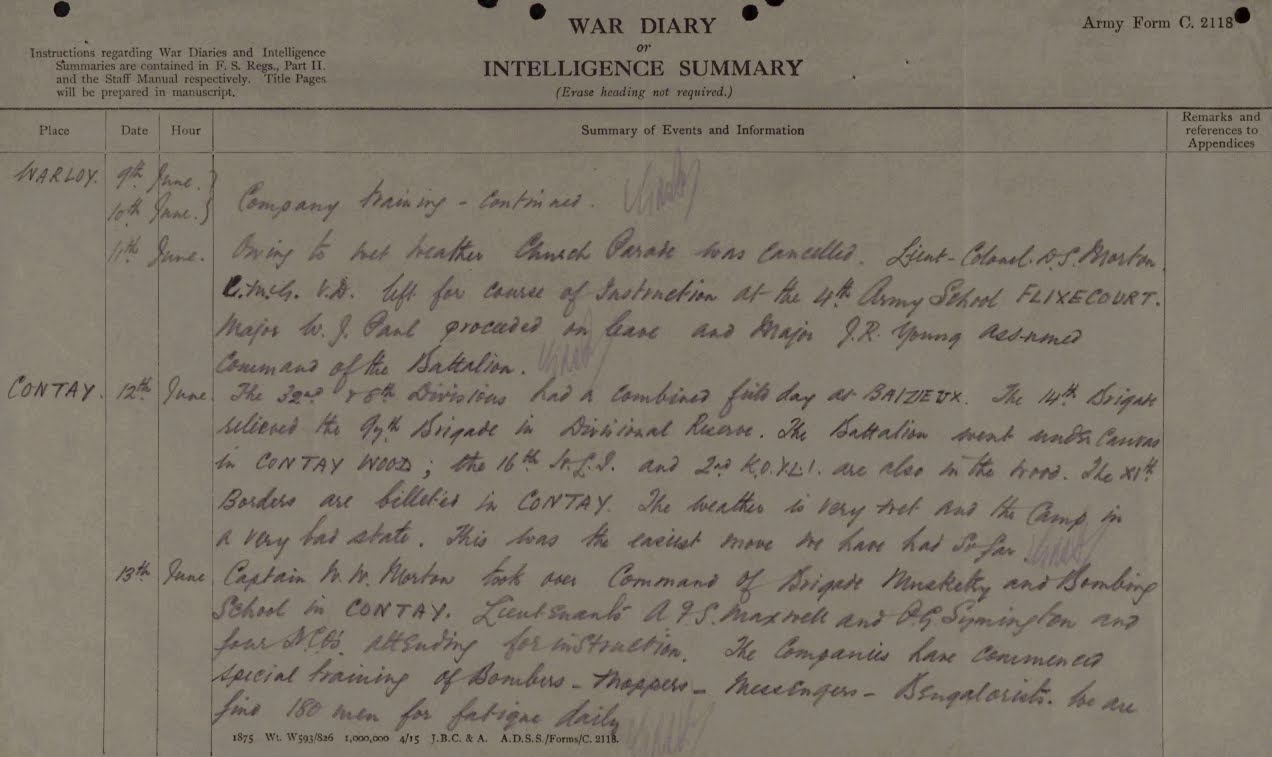 WAR DIARY
or
INTELLIGENCE SUMMARY
(Erase heading not required.)
Army Form C. 2118
Instructions regarding War Diaries and Intelligence
Summaries are contained in F. S. Regs., Part II.
and the Staff Manual respectively. Title Pages
will be prepared in manuscript.
Place Date Hour Summary of Events and Information Remarks and references to Appendices
WARLOY. 9th June.
10th June. Company training - continued.
11th June. Owing to wet weather Church Parade was cancelled. Lieut-Colonel. D.S. Morton.
C.M.G. V.D. left for course of Instruction at the 4th Army School FLIXECOURT.
Major W. J. Paul proceeded on leave and Major J.R. Young assumed
Command of the Battalion.
CONTAY. 12th June. The 32nd & 8th Divisions had a combined field day at BAIZIEUX. The 14th Brigade
relieved the 97th Brigade in Divisional Reserve. The Battalion went under Canvas
in CONTAY WOOD; the 16th H.L.I. and 2nd K.O.Y.L.I. are also in the wood. The XIth
Borders are billeted in CONTAY. The weather is very wet and the Camp in
a very bad state. This was the easiest move we have had so far.
13th June Captain W. W. Morton took over Command of Brigade Musketry and Bombing
School in CONTAY. Lieutenants A F S. Maxwell and Symington and
four N.C.O's. attending for instruction. The Companies have commenced
special training of Bombers - Moppers - Messengers - Bengalorists. We are
find 180 men for fatigue daily
1875 Wt. W593/826 1,000,000 4/15 J.B.C. & A. A.D.S.S./Forms/C. 2118.